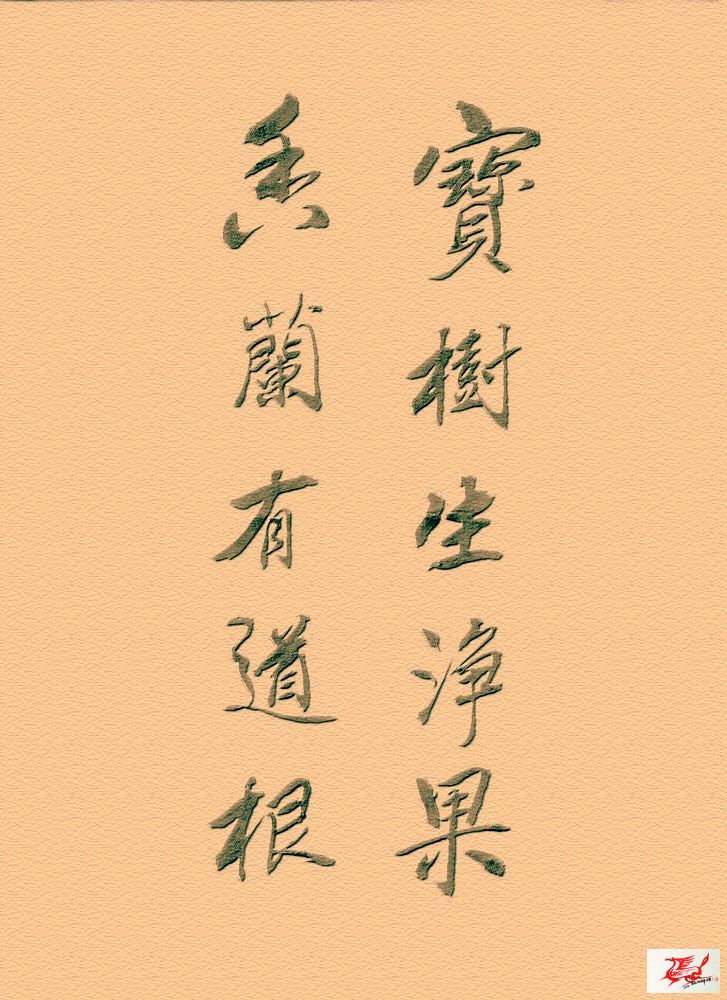 寶樹生淨果
香蘭有道根